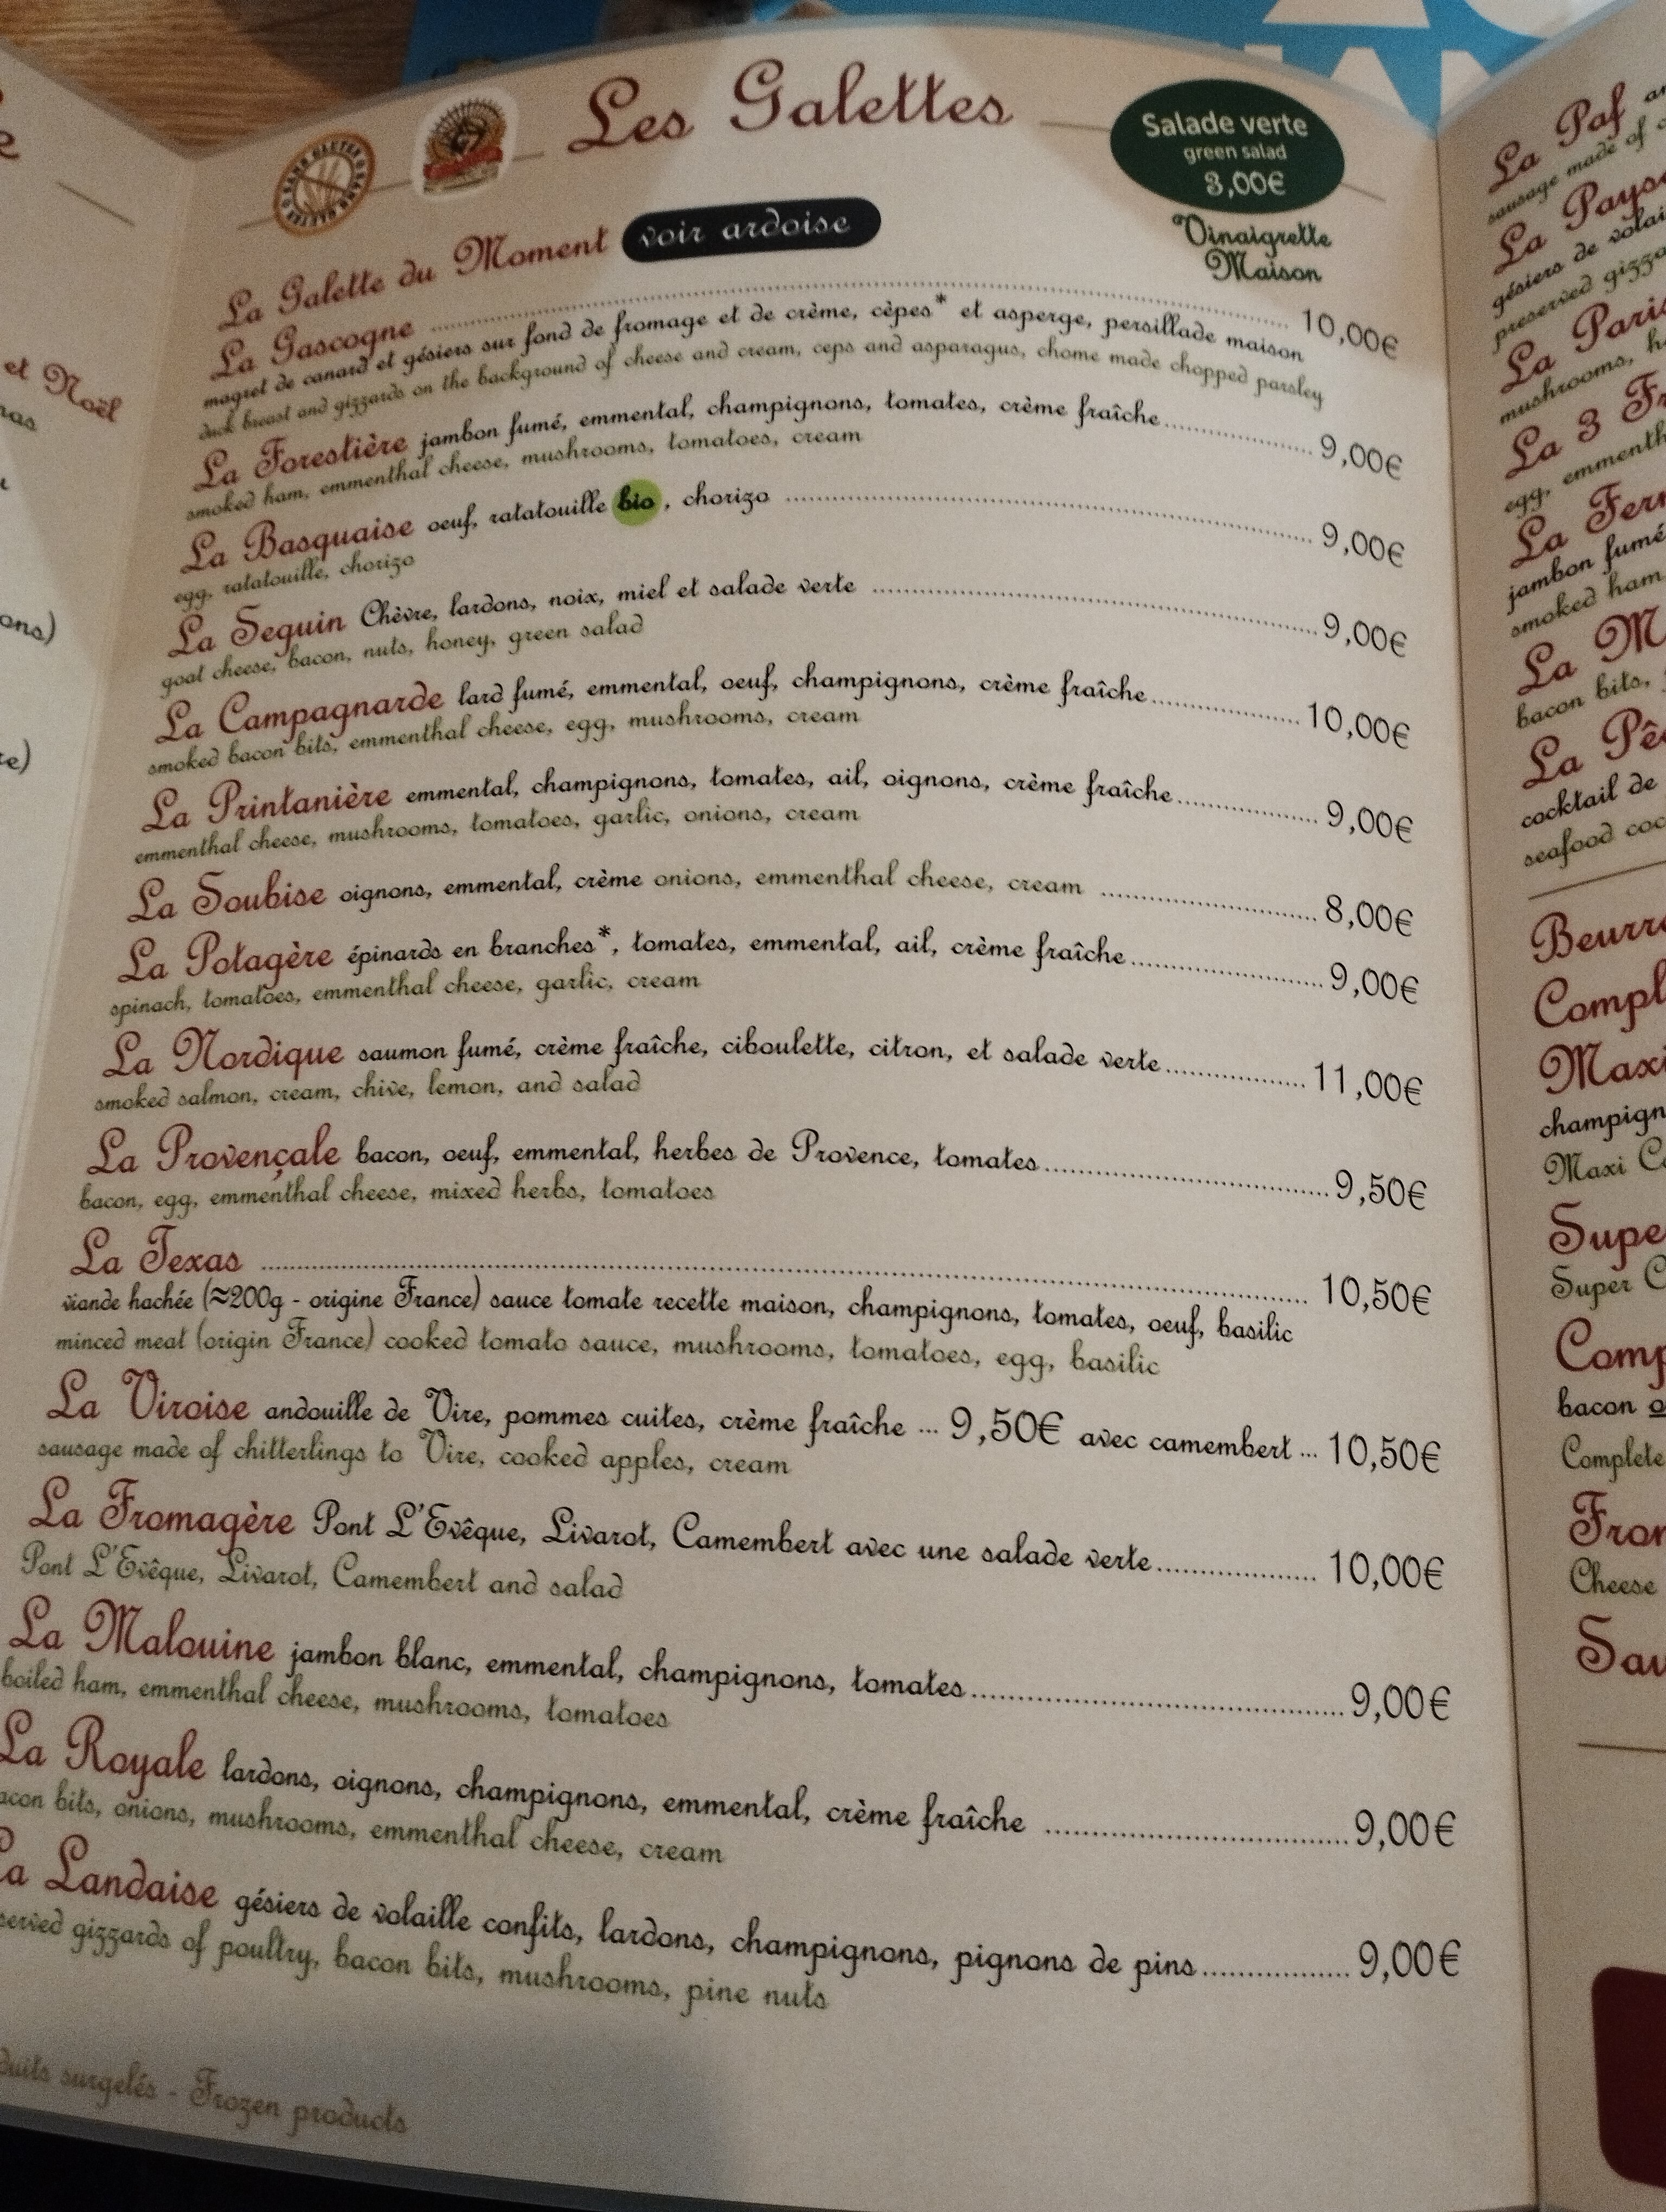 Les Galettes
SANS GLUTEN SANS GLUTEN
Salade verte
green salad
3,00€
Vinaigrette
Maison
La Galette du Moment voir ardoise
La Gascogne ........ 10,00€
magret de canard et gésiers sur fond de fromage et de crème, cèpes* et asperge, persillade maison
duck breast and gizzards on the background of cheese and cream, ceps and asparagus, chome made chopped parsley
La Forestière jambon fumé, emmental, champignons, tomates, crème fraîche........ 9,00€
smoked ham, emmenthal cheese, mushrooms, tomatoes, cream
La Basquaise oeuf, ratatouille bio, chorizo ........ 9,00€
egg, ratatouille, chorizo
La Seguin Chèvre, lardons, noix, miel et salade verte ........ 9,00€
goat cheese, bacon, nuts, honey, green salad
La Campagnarde lard fumé, emmental, oeuf, champignons, crème fraîche........ 10,00€
smoked bacon bits, emmenthal cheese, egg, mushrooms, cream
La Printanière emmental, champignons, tomates, ail, oignons, crème fraîche........ 9,00€
emmenthal cheese, mushrooms, tomatoes, garlic, onions, cream
La Soubise oignons, emmental, crème onions, emmenthal cheese, cream ........ 8,00€
La Potagère épinards en branches*, tomates, emmental, ail, crème fraîche........ 9,00€
spinach, tomatoes, emmenthal cheese, garlic, cream
La Nordique saumon fumé, crème fraîche, ciboulette, citron, et salade verte........ 11,00€
smoked salmon, cream, chive, lemon, and salad
La Provençale bacon, oeuf, emmental, herbes de Provence, tomates........ 9,50€
bacon, egg, emmenthal cheese, mixed herbs, tomatoes
La Texas ........ 10,50€
viande hachée (≈200g - origine France) sauce tomate recette maison, champignons, tomates, oeuf, basilic
minced meat (origin France) cooked tomato sauce, mushrooms, tomatoes, egg, basilic
La Viroise andouille de Vire, pommes cuites, crème fraîche ... 9,50€ avec camembert ... 10,50€
sausage made of chitterlings to Vire, cooked apples, cream
La Fromagère Pont L'Evêque, Livarot, Camembert avec une salade verte........ 10,00€
Pont L'Evêque, Livarot, Camembert and salad
La Malouine jambon blanc, emmental, champignons, tomates........ 9,00€
boiled ham, emmenthal cheese, mushrooms, tomatoes
La Royale lardons, oignons, champignons, emmental, crème fraîche ........ 9,00€
bits, onions, mushrooms, emmenthal cheese, cream
Landaise gésiers de volaille confits, lardons, champignons, pignons de pins........ 9,00€
gizzards of poultry, bacon bits, mushrooms, pine nuts
surgelés - Frozen products
et Noël
La Paf
sausage made of
La
gésiers de
preserved
La
mushrooms,
La 3
egg,
La
jambon fumé
smoked ham
La
bacon bits,
La
cocktail de
seafood
Maxi
Maxi
Super
bacon o
Complete
Cheese